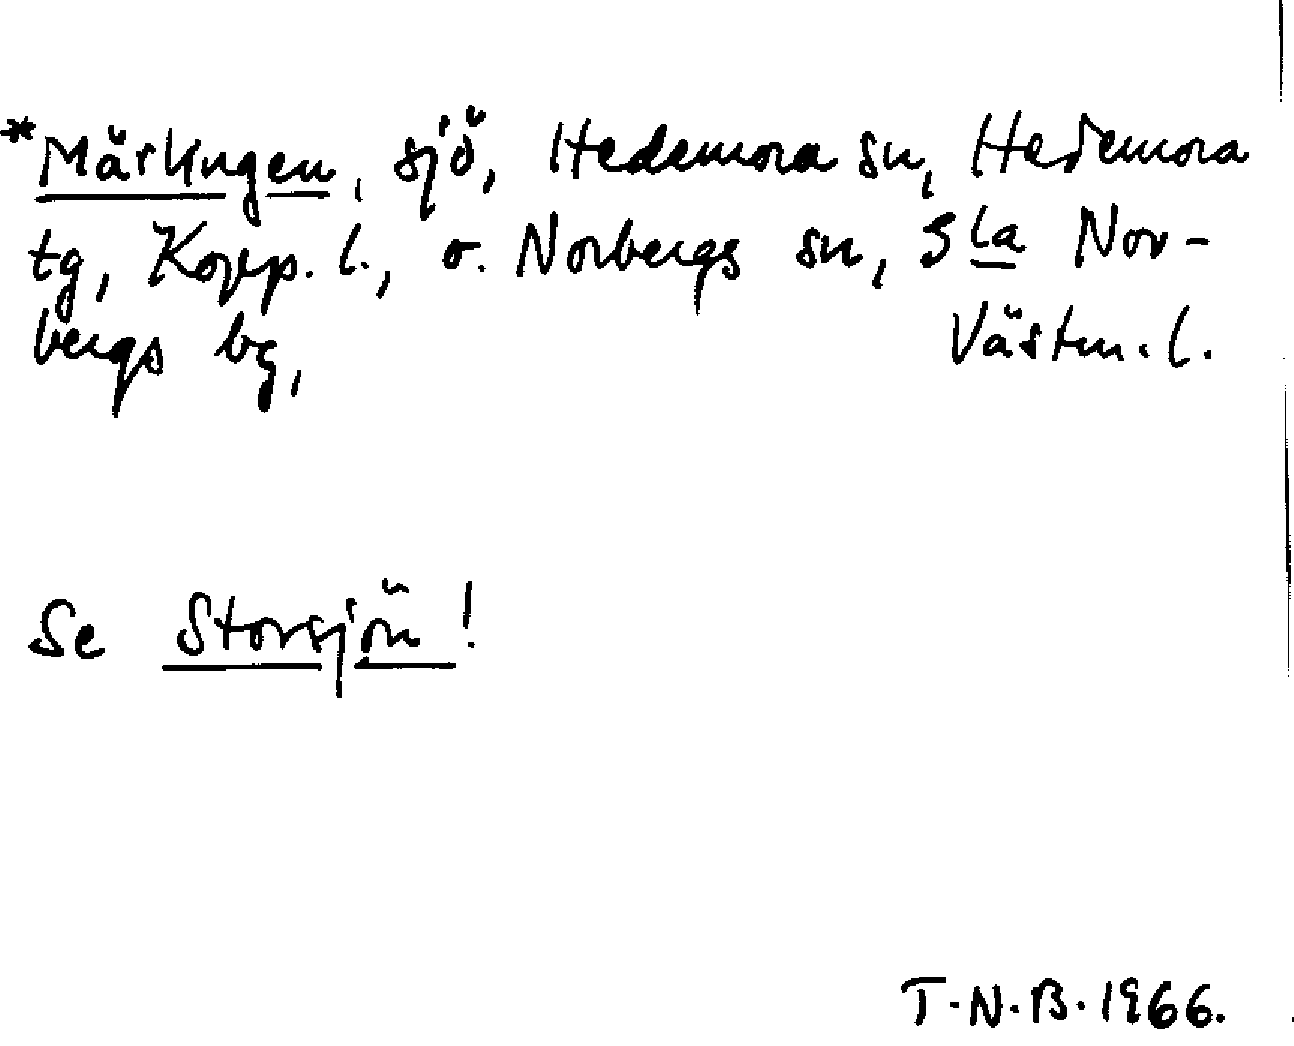 *Märlingen, sjö, Hedemora sn, Hedemora
tg, Kopp. l., o. Norbergs sn, Gla Nor-
bergs bg, Västm. l.
Se Storsjön!
T.N.B. 1966.